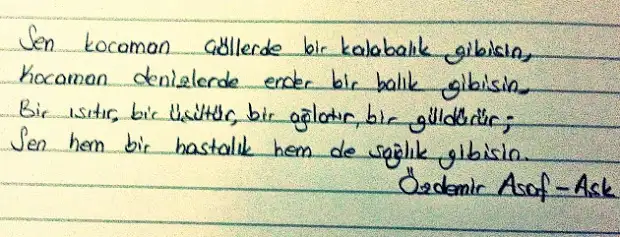 Sen kocaman Göllerde bir kalabalık gibisin,
Kocaman denizlerde ender bir balık gibisin.
Bir ısıtır, bir üşütür, bir ağlatır, bir güldürür;
Sen hem bir hastalık hem de sağlık gibisin.
Özdemir Asaf - Aşk